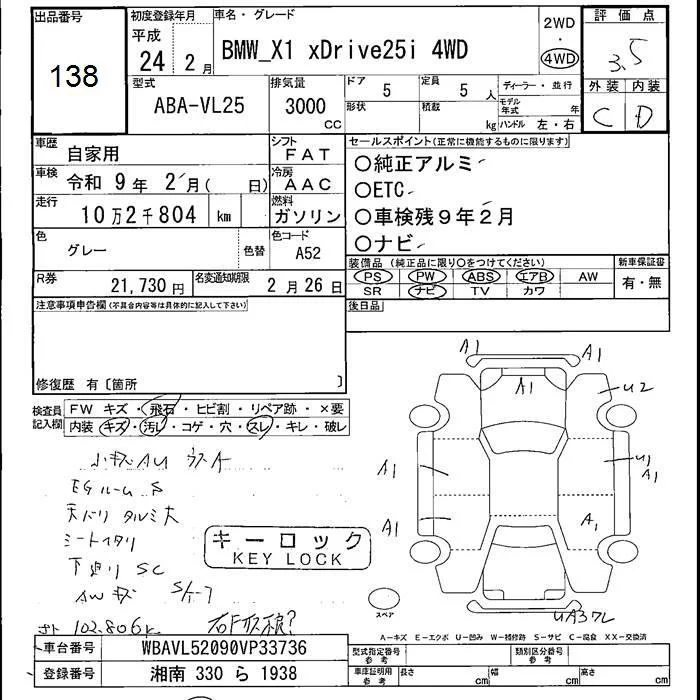 出品番号
138
初度登録年月
平成
24 2 月
車名・グレード
BMW_X1 xDrive25i 4WD
2WD
・
4WD
評価点
3.5
外装 内装
C D
型式
ABA-VL25
排気量
3000
CC
ドア
5
定員
5 人
形状
積載
kg
ディーラー・並行
モデル年式 年
ハンドル 左・右
車歴
自家用
シフト
FAT
車検
令和 9年 2月( 日)
冷房
AAC
走行
10万2千804 km
燃料
ガソリン
色
グレー
色替
色コード
A52
R券
21,730 円
名変通知期限
2 月 26 日
セールスポイント(正常に機能するものに限ります)
○純正アルミ
○ETC
○車検残9年2月
○ナビ
装備品(純正品に限り○をつけてください)
PS PW ABS エアB AW
SR ナビ TV カワ
新車保証書
有・無
後日品
注意事項申告欄(不具合内容等は具体的に記入して下さい)
修復歴 有〔箇所 〕
検査員記入欄
FW キズ・飛石・ヒビ割・リペア跡・×要
内装 キズ・汚レ・コゲ・穴・スレ・キレ・破レ
小キズAU
EGルームS
天バリ タルミ大
シートヘタリ
下廻り SC
AWキズ
キーロック
KEY LOCK
102,806k
A1
A1
A1
U2
A1
U1
A1
A1
A1
スペア
A-キズ E-エクボ U-凹み W-補修跡 S-サビ C-腐食 XX-交換済
車台番号
WBAVL52090VP33736
登録番号
湘南 330 ら 1938
型式指定番号
参考
類別区分番号
参考
車庫証明用
参考
長さ cm
幅 cm
高さ cm